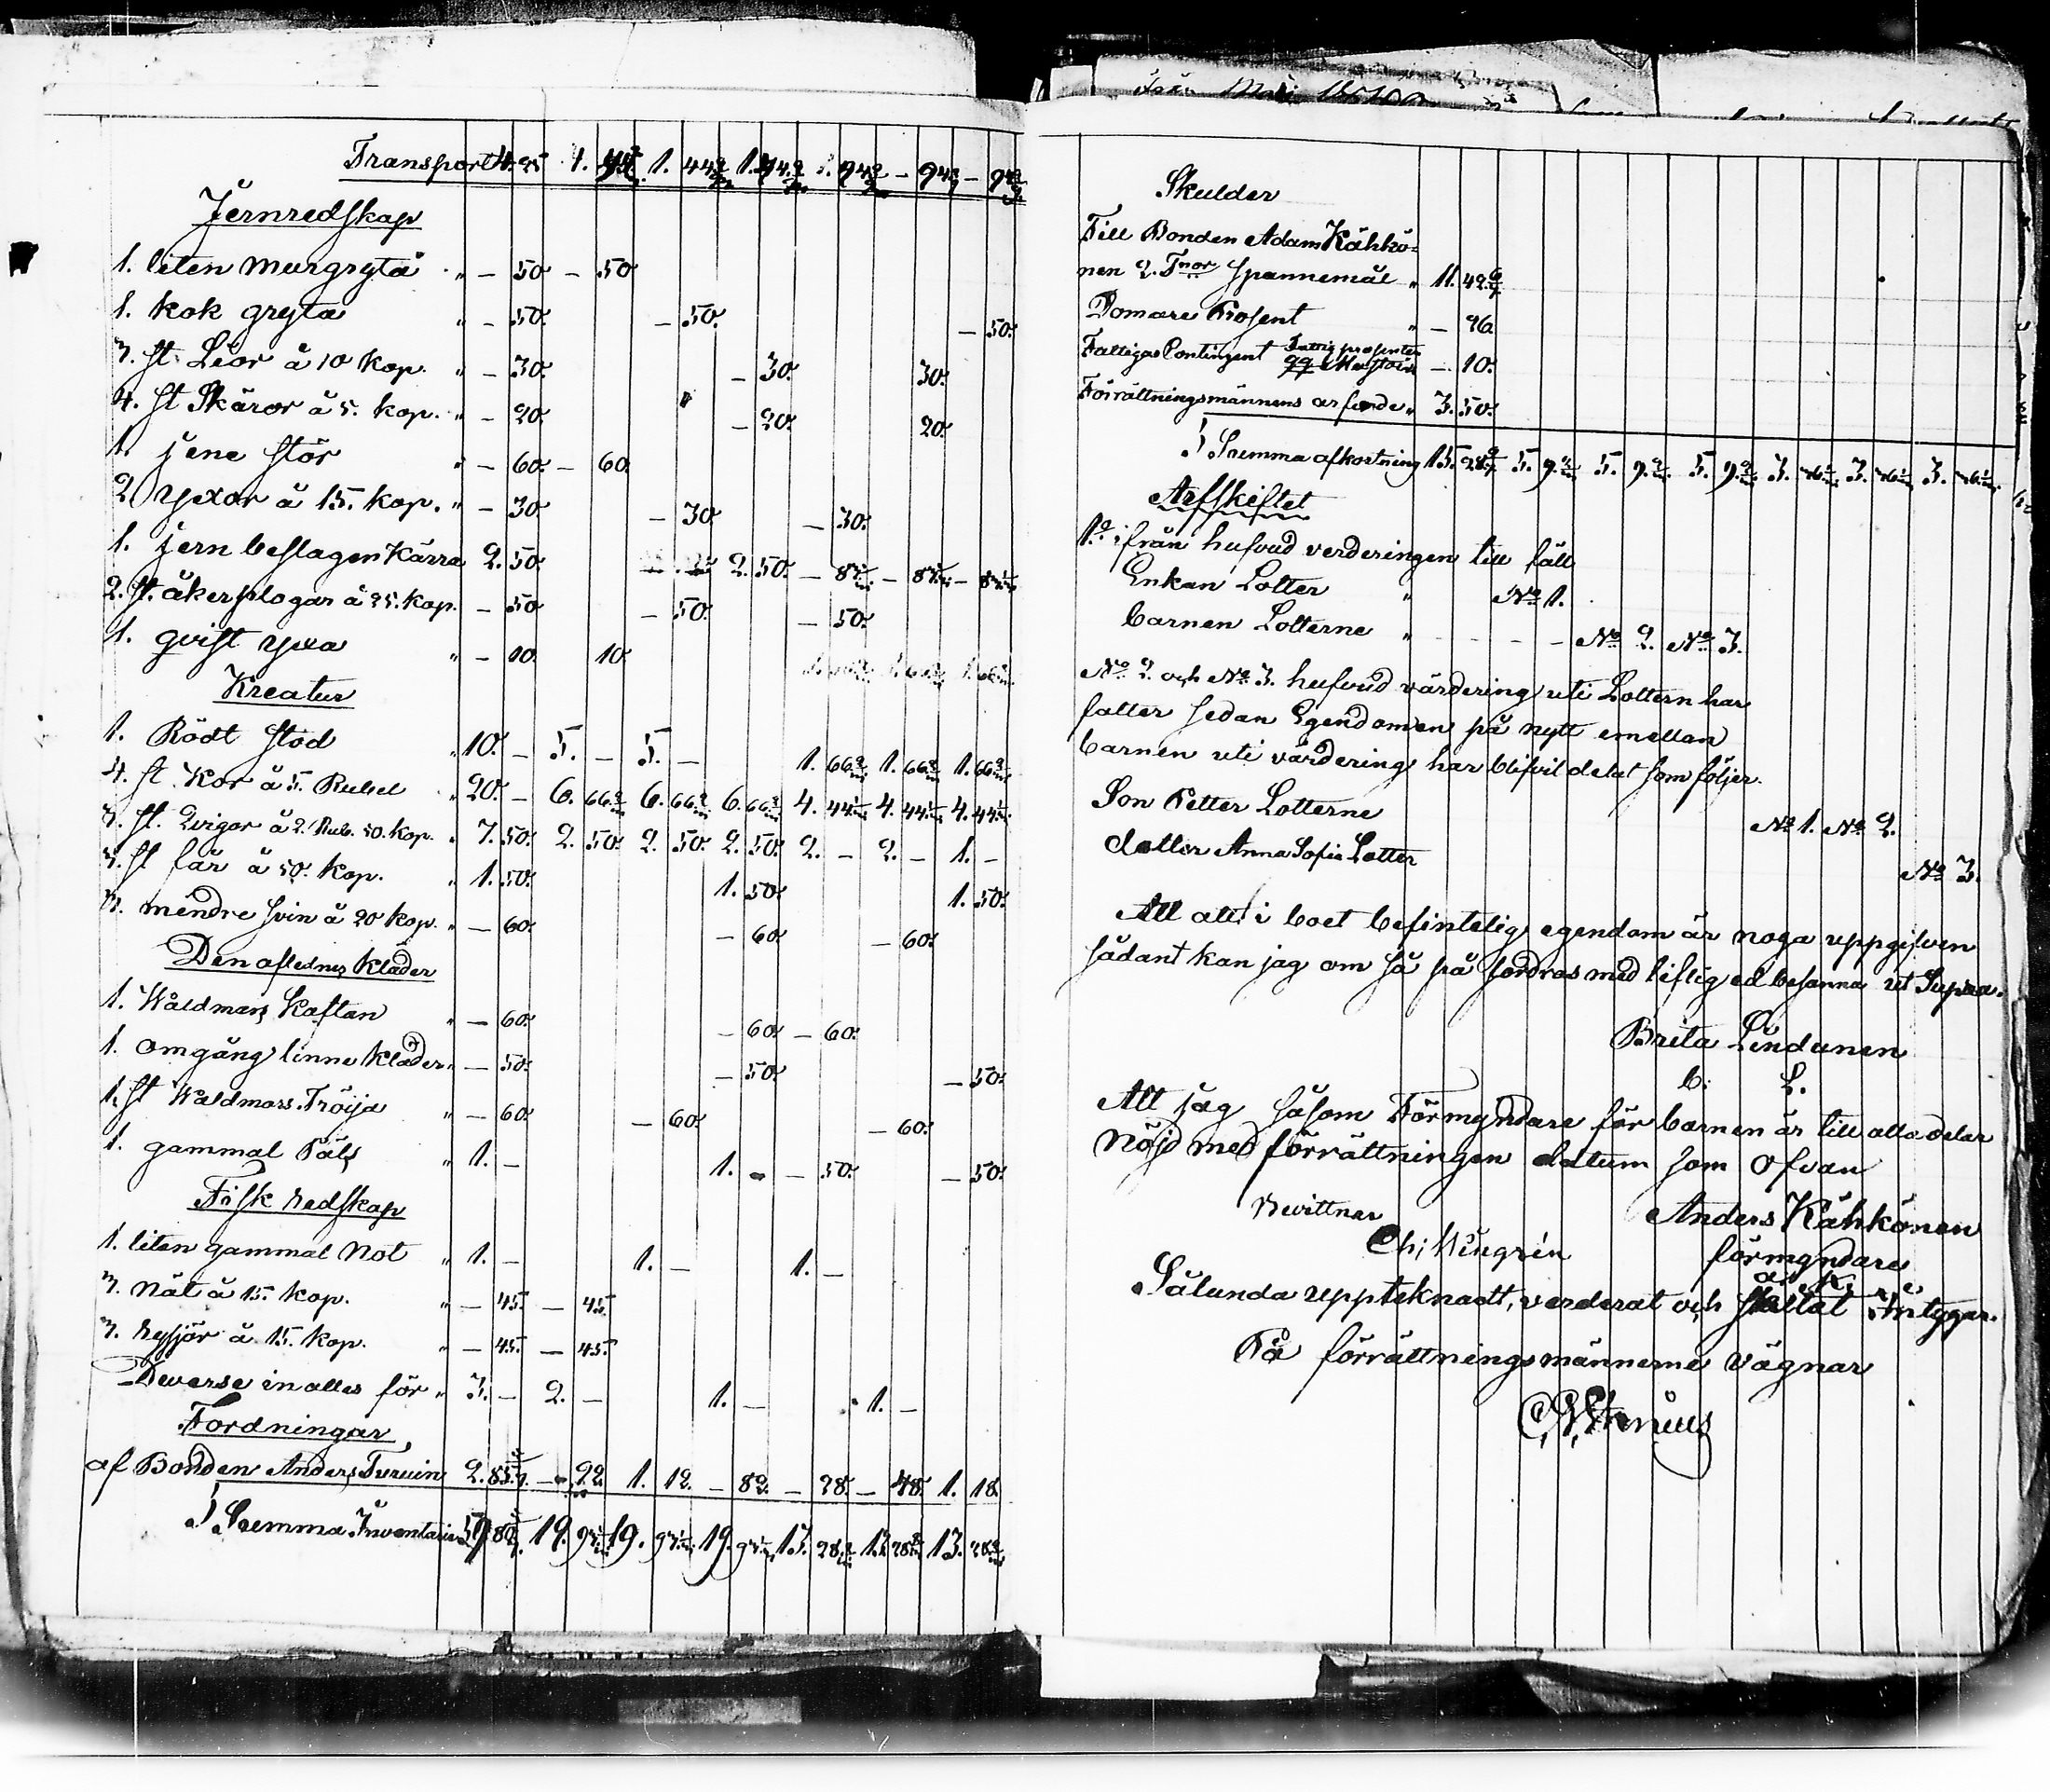 Transport 4. 35 1. 1. 44 1. 44 94 – 94 – 94
Jernredskap
1. liten murgryta " – 50. – 50
1. kok gryta " – 50. – 50. – 50.
3. st Lior à 10 kop. " – 30. – 30. 30.
4. st Skäror à 5. kop. " – 20. – 20. 20.
1. jene stör " – 60. – 60.
2 yxor à 15. kop. " – 30. – 30. – 30.
1. jern beslagen Kärra 2. 50. 2. 50. – 83 – 83 – 83
2. st. åkerplogar à 25. kop. – 50 – 50. – 50.
1. qvist yxa " – 10. 10.
Kreatur
1. Rödt stod " 10. – 5. – 5. – 1. 66 1. 66 1. 66
4. st. Kor à 5. Rubel " 20. – 6. 66 6. 66 6. 66 4. 44 4. 44 4. 44
3. st. Qvigor à 2. Rub. 50. kop. " 7. 50. 2. 50. 2. 50 2. 50. 2. – 2. – 1. –
3. st får à 50. kop. " 1. 50. 1. 50. 1. 50.
3. mendre svin à 20 kop. " – 60. – 60. – 60.
Den aflednes kläder
1. Waldmans Kaftan " – 60. – 60. – 60.
1. omgång linne kläder " – 50. – 50. – 50.
1. st Waldmars Tröija " – 60. – 60. – 60.
1. gammal Päls " 1. – 1. – – 50. – 50.
Fisk redskap
1. liten gammal Not " 1. – 1. – 1. –
3. Nät à 15. kop. " – 45. – 45.
3. rysjor à 15. kop. " – 45. – 45.
Diverse in alles för " 3. – 2. – 1. – 1. –
Fordningar
af Bonden Anders Turuin 2. 85 – 22 1. 12. – 82. – 28. – 48. 1. 18.
Summa Inventarium 59. 80 19. 93 19. 93 19. 93 13. 28 13. 28 13. 28
Skulder
Till Bonden Adam Kähkö-
nen 2. Tnor Spannemål " 11. 42
Domare Prosent " – 26
Fattigas Contingent Fattig prosenten – 10.
Förrättningsmännens arfvode " 3. 50.
Summa afkortning 15. 28 5. 9 5. 9 5. 9 3. 3. 3.
Arfskiftet
1o ifrån hufvud verderingen till fäll
Enkan Lotter " No 1.
barnen Lotterne " – – – – No 2. No 3.
No 2. och No 3. hufvud värdering uti Lottern har
faller sedan Egendomen på nytt emellan
barnen uti värdering har blifvit delat som följer.
Son Petter Lotterne No 1. No 2.
dotter Anna Sofia Lotter No 3.
All alt i boet befintelig egendom är noga uppgifven
sådant kan jag om så på fordras med liflig ed besanna ut Supra.
Brita Lindunen
b. L.
Att jag såsom Förmyndare för barnen är till alla delar
Nöjd med förrättningen datum som ofvan
Bevittnar Anders Kähkönen
förmyndare
Sålunda uppteknadt, verderat och skiftat Intygar.
På förrättningsmännernes vägnar